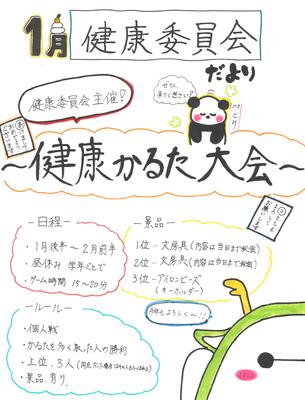 1月 健康委員会
だより
ぜひ、
来てください!
健康委員会主催!
ぺこり
あけまして
おめでとう
ございます
〜健康かるた大会〜
ことしも
よろしく
お願いします
ー日程ー
・1月後半〜2月前半
・昼休み 学年ごとで
・ゲーム時間 15〜20分
ー景品ー
1位ー文房具(内容は当日まで秘密)
2位ー文房具(内容は当日まで秘密)
3位ーアイロンビーズ
(キーホルダー)
ールールー
・個人戦
・かるたを多く取った人の勝利
・上位 3人
・景品有り
今年もよろしく〜!!